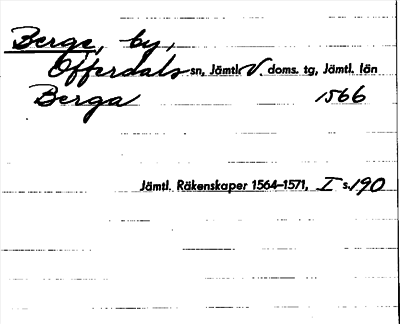 Berge, by,
Offerdals sn, Jämtl. V. doms. tg, Jämtl. län
Berga 1566
Jämtl. Räkenskaper 1564–1571, I s. 190